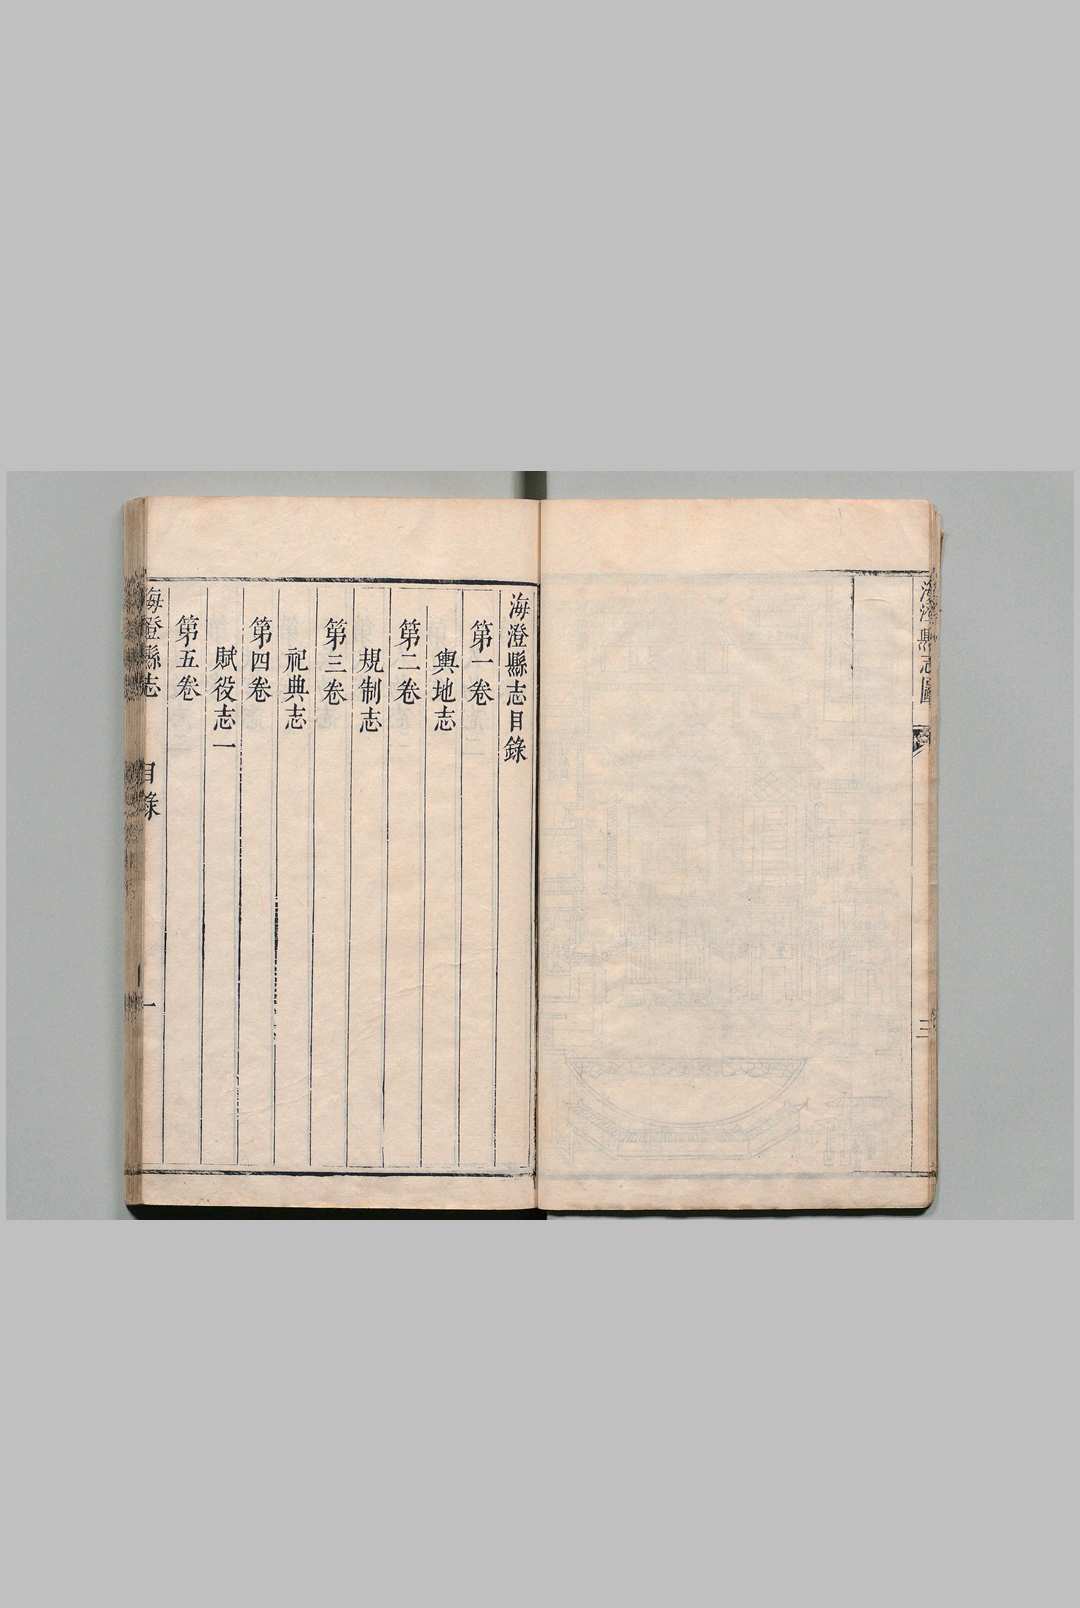 海澄縣志圖
三
海澄縣志目錄
第一卷
輿地志
第二卷
規制志
第三卷
祀典志
第四卷
賦役志一
第五卷
海澄縣志
目錄
一